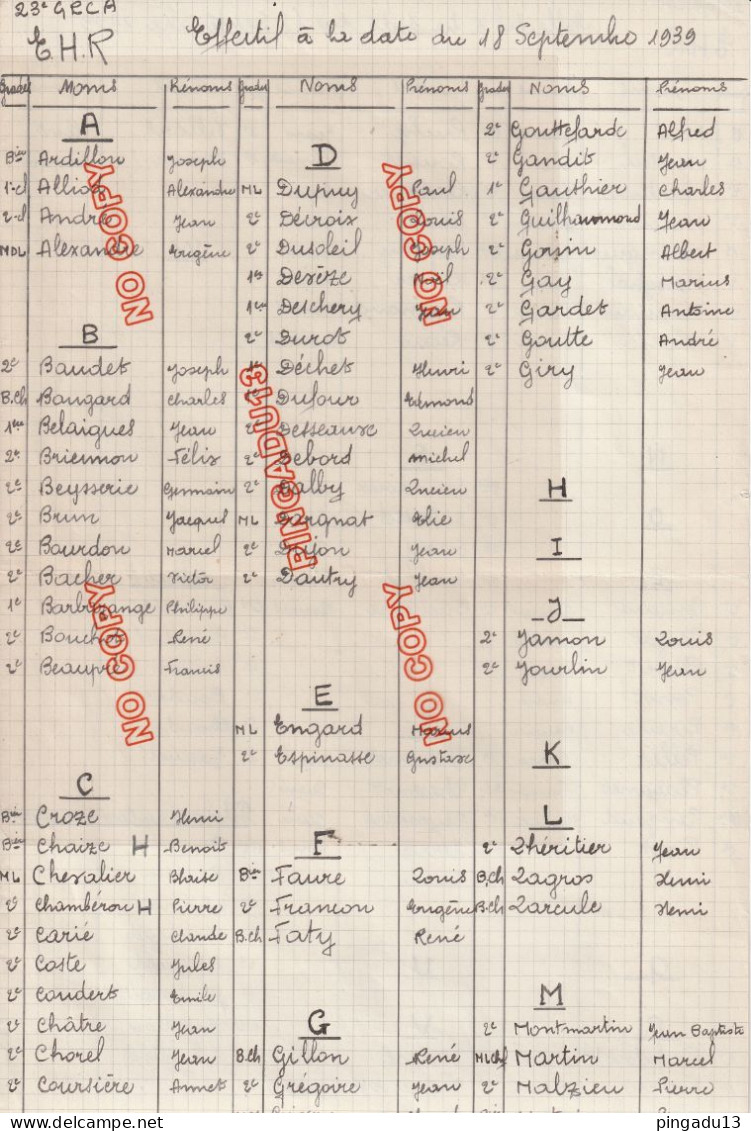 23e GRCA
E.H.R Effectif à la date du 18 Septembre 1939
Grades Noms Prénoms
A
Bier Ardillon Joseph
1e cl Alliod Alexandre
2e cl André Jean
MDL Alexandre Eugène
B
2e Baudet Joseph
B.Ch Baugard Charles
1ère Belaigues Jean
2e Briennon Félix
2e Beysserie Germain
2e Brun Jacques
2e Bourdon Marcel
2e Bacher Victor
1e Philippe
2e Bouchot René
2e Beaupré Francis
C
Bier Croze Henri
Bier Chaize H Benoit
ML Chevalier Blaise
2e Chambérou H Pierre
2e Carié Claude
2e Coste Jules
2e Coudert Emile
2e Châtre Jean
2e Chorel Jean
2e Coursière Annet
Grades Noms Prénoms
D
ML Dupuy Paul
2e Décroix Louis
2e Dusoleil Joseph
1er Desèze Noël
1ère Deschery Jean
2e Durot
1e Déchet Henri
2e Dufour Edmond
2e Desseauxe Lucien
2e Debord Michel
2e Dalby Lucien
ML Dargnat Elie
2e Dajon Jean
2e Dautry Jean
E
ML Engard Marius
2e Espinasse Gustave
F
Bier Faure Louis
2e Francon Eugène
B.Ch Faty René
G
B.Ch Gillon René
2e Grégoire Jean
Grades Noms Prénoms
2e Gouttefarde Alfred
2e Gandit Jean
1e Gauthier Charles
2e Guilhaumond Jean
2e Gorsin Albert
2e Gay Marius
2e Gardet Antoine
2e Goutte André
2e Giry Jean
H
I
J
2e Jamon Louis
2e Jourlin Jean
K
L
2e Lhéritier Jean
B.Ch Lagros Henri
B.Ch Larcule Henri
M
2e Montmartin Jean Baptiste
ML Chf Martin Marcel
2e Malzieu Pierre
NO COPY
NO COPY
PINGADU13
NO COPY
NO COPY
delcampe.net
pingadu13